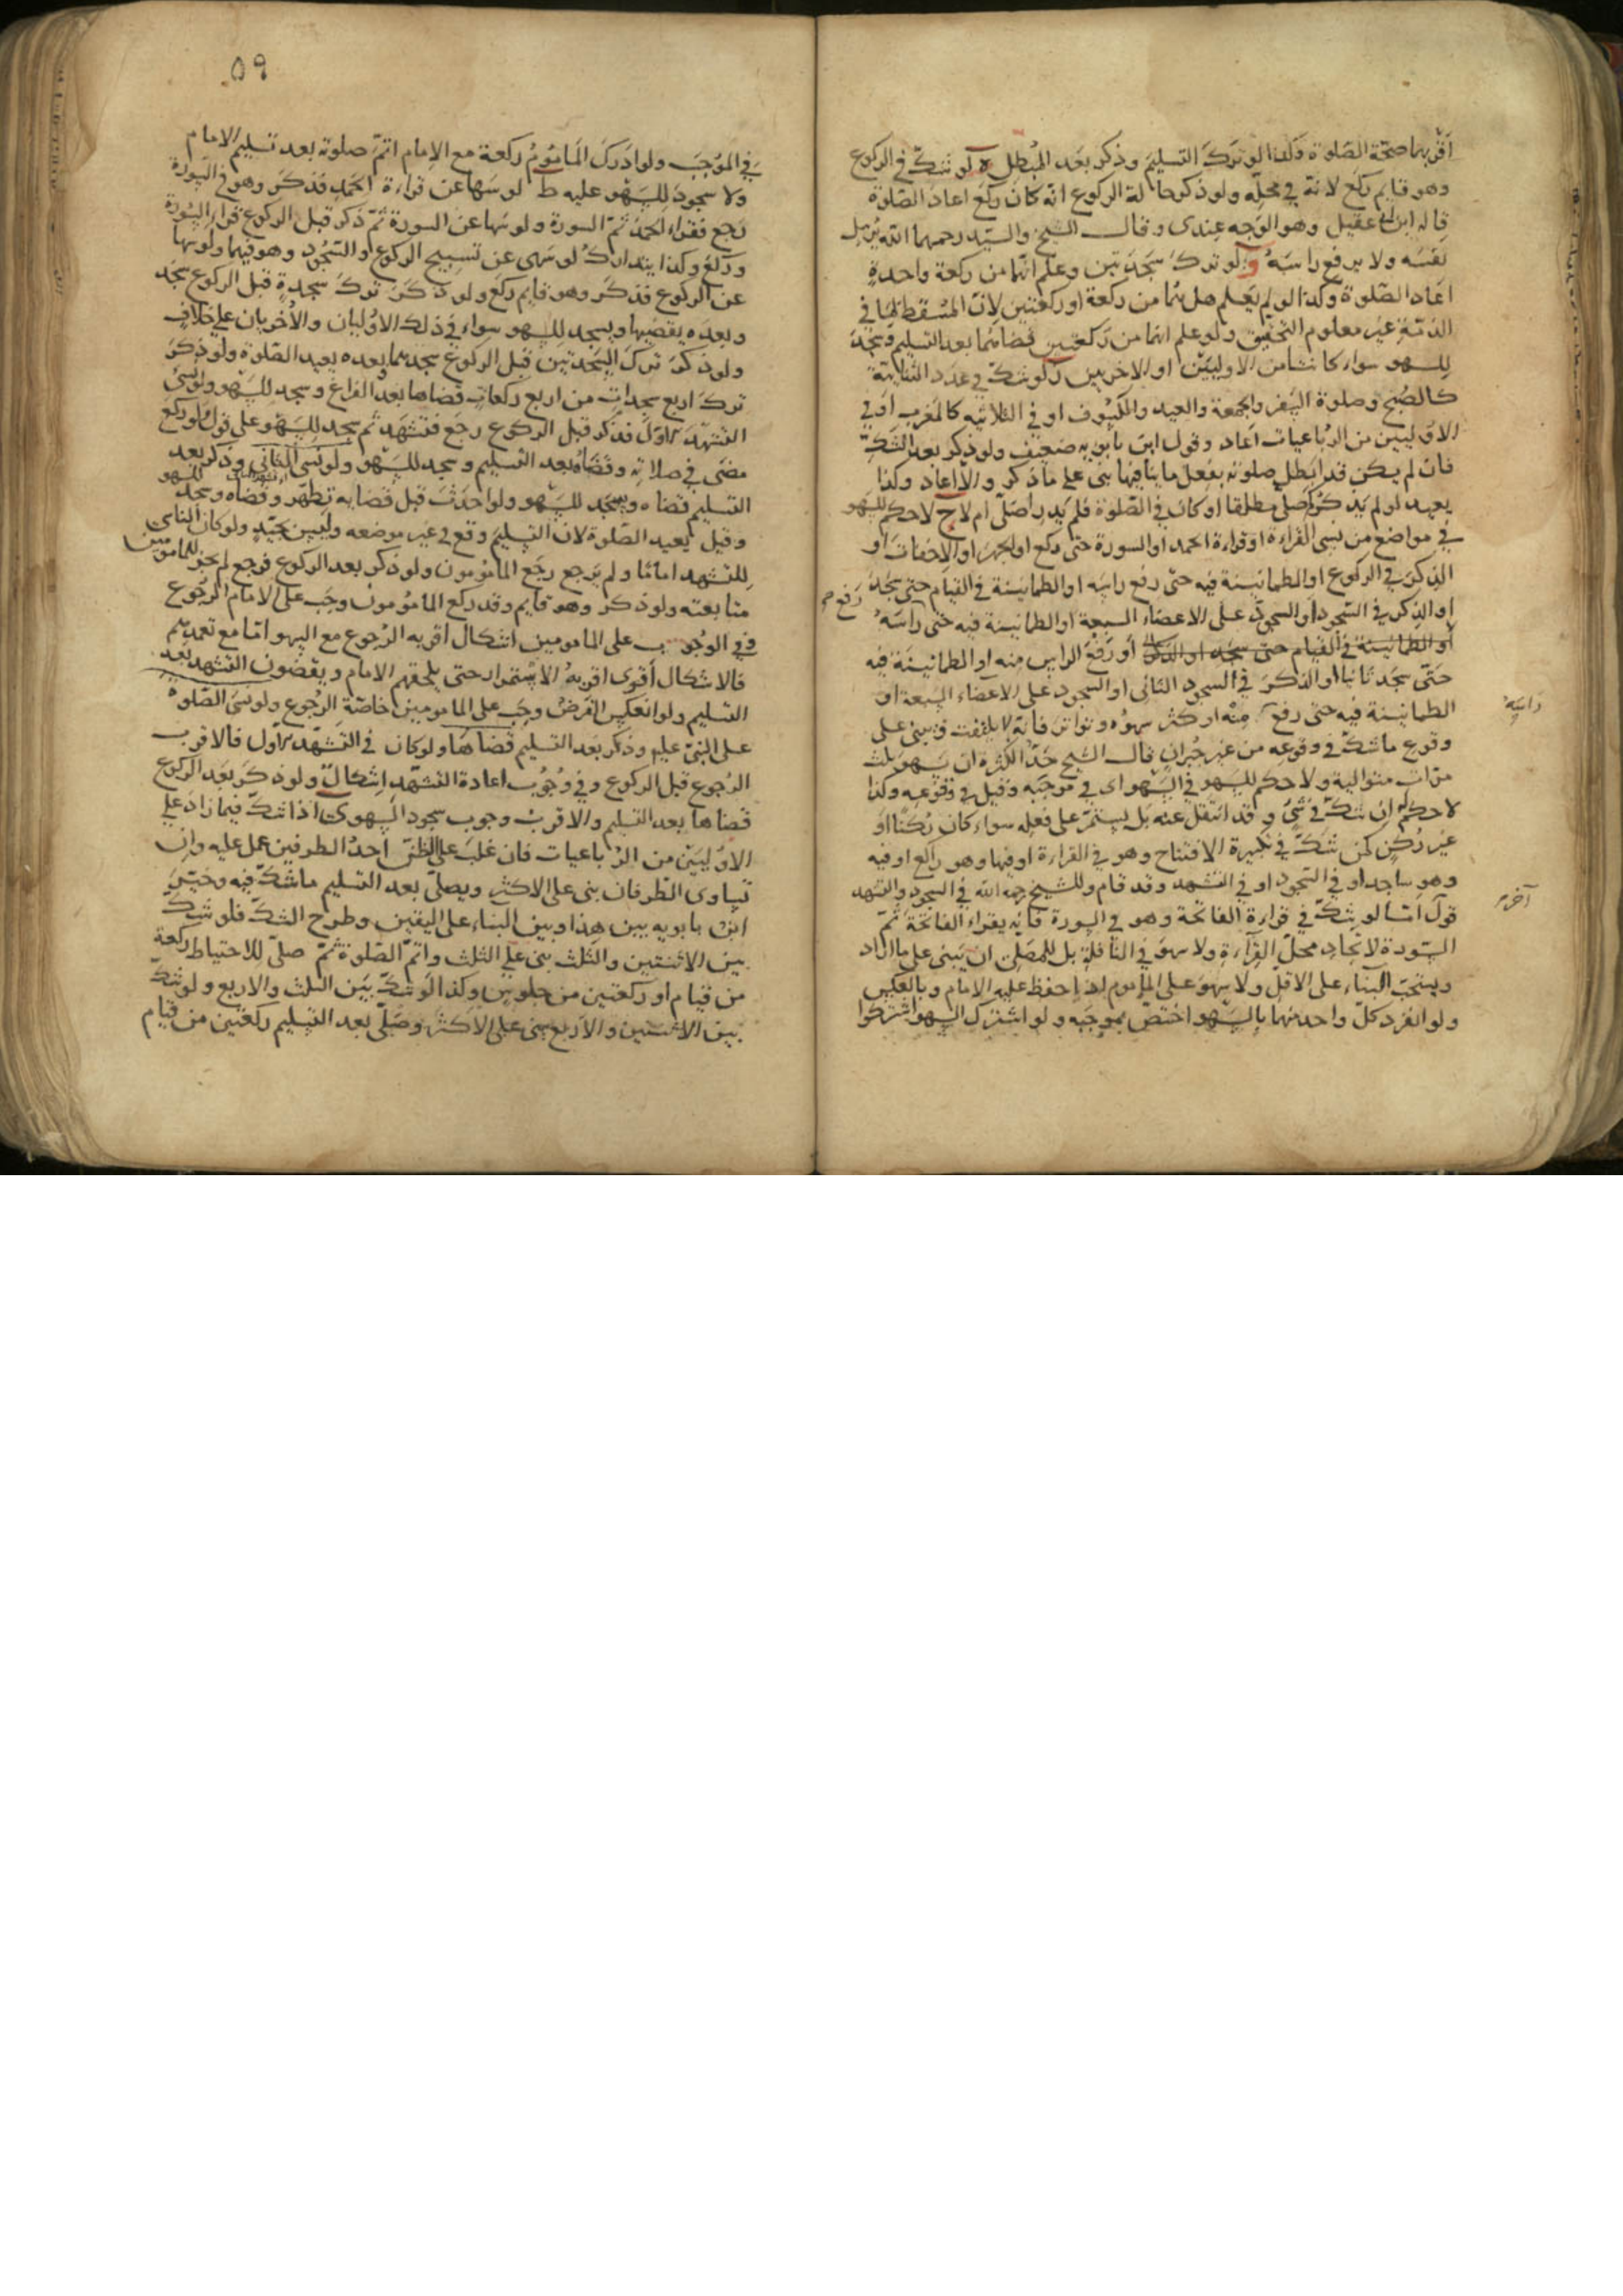 أقربهما صحّة الصّلوة وكذا لو ترك التسليم وذكر بعد المُبطِل ه لو شكّ في الركوع
وهو قايم ركع لانّه في محلّه ولو ذكر حالة الركوع انّه كان ركع اعاد الصّلوة
قاله ابن ابي عقيل وهو الوجه عندى وقال الشيخ والسيّد رحمهما الله يُرسِل
نفسه ولا يرفع راسَهُ و لو ترك سَجدَتين وعلم انّهما من ركعة واحدةٍ
اعاد الصّلوة وكذا لو لم يعلم هل هُما من ركعة او ركعتين لانّ المُسقِط لما في
الذمّة غيرُ معلوم التحقيق ولو علم انهما من ركعتين قضاهُما بعد التسليم وسجد
للسهو سواء كانتا من الاوليين او الاخريين ز لو شكّ في عدد الثنائيّة
كالصُبح وصلوة السفر والجمعة والعيد والكسوف او في الثلاثيّه كالمغرب او في
الاوّليين من الرُباعيات اعاد وقول ابن بابويه ضعيف ولو ذكر بعد الشكّ
فان لم يكن قد ابطل صلوته بفعل ما ينافيها بنى على ما ذكر والّا اعاد وكذا
يعيد لو لم يذكُر كم صلّى مطلقا او كان في الصّلوة فلم يَدرِ اصَلّى ام لا ح لا حكم للسهو
في مواضع من نسى القراءة او قراءة الحمد او السورة حتّى ركع او الجهرَ او الاخفاتَ او
الذكرَ في الركوع او الطمانينة فيه حتّى رفع راسَه او الطمانينة في القيام حتى سجد
او الذكر في السجود او السجودَ على الاعضاء السبعة او الطمانينة فيه حتى رفع راسَهُ
او الطمانينة في القيام حتى سجد او الذكر أو رَفعَ الراس منه او الطمانينة فيه
حتّى سَجَدَ ثانيا او الذكرَ في السجود الثانى او السجود على الاعضاء السَبعة او
الطمانينة فيه حتى رفع راسَهُ مِنْهُ او كثر سهوُه وتواتر فانّه لا يلتفت ويبنى على
وقوع ما شكّ في وقوعه من غير جُبران قال الشيخ حَدّ الكثرة ان يَسهوَ ثلث
مرّات متوالية ولا حكم للسهو في السّهو اى في موجَبه وقيل في وقوعِه وكذا
لا حكم له ان شكّ في شَئٍ وقد انتقل عنه بل يستمرّ على فعلِه سواء كان رُكنًا او
غيرَ رُكنٍ كمن شَكّ في تكبيرة الافتتاح وهو في القراءة او فيها وهو راكع او فيه
وهو ساجد او في السجود او في التشهد وقد قام وللشيخ رحمه الله في السجود والتشهد
قول آخر امّا لو شكّ في قراءة الفاتحة وهو في السورة فانّه يقراء الفاتحة ثمّ
السّورة لاتّحادِ محلّ القِراءةِ ولا سهوَ في النّافلةِ بل للمصلّى ان يَبنى على ما اراد
ويستحبّ البناء على الاقلّ ولا سَهوَ على المأموم اذا حفظ عليه الامام وبالعكس
ولو انفرد كلّ واحد منهما بالسّهو اختصّ بموجَبه ولو اشترك السهو اشتركوا
٥٩
في الموجَب ولو ادرك المأمومُ ركعة مع الامام اتمّ صلوته بعد تسليم الامام
ولا سجودَ للسَهْوِ عليه ط لو سَها عن قراءة الحمد فذكر وهو في السّورة
رجع فقراء الحمد ثمّ السورة ولو سَها عن السورة ثمّ ذكر قبل الركوع قراء السّورة
وركع وكذا يتدارك لو سَهى عن تسبيح الركوع او السّجود وهو فيهما ولو سها
عن الركوع فذكر وهو قايم ركع ولو ذكَرَ تركَ سجدةٍ قبل الركوع سجد
وبعدَه يقضيها ويسجد للسهو سواء في ذلك الاوّليان والأُخريان على خلافٍ
ولو ذكرَ ترك السّجدتين قبل الركوع سجدهما وبعده يعيد الصّلوة ولو ذكرَ
تركَ اربع سجداتٍ من اربع ركعاتٍ قضاها بعد الفراغ وسجد للسّهو ولو نسى
التشهّد الاوّل فذكر قبل الركوع رجَع فتشهّد ثم سجد للسّهْوِ على قول ولو ركع
مضى في صلاتِهِ وقضاهُ بعد التسليم وسجد للسّهو ولو نسى التشهد الثانى وذكر بعد
التسليم قضاه وسجد للسّهو ولو احدَثَ قبل قضايه تطهّر وقضاه وسجد للسهو
وقيل يعيد الصّلوة لانّ التسليمَ وقع في غير موضعه وليس بجيّدٍ ولو كان الناسى
للتشهد امامًا ولم يرجع رجع المامومون ولو ذكر بعد الركوع فرجع لم يجز للمامومين
متابعته ولو ذكر وهو قايم وقد ركع المامومون وجَب على الامام الرُجوع
وفي الوجُوب على المامومين اشكال اقربه الرُجوع مع السهو امّا مع تعمدهم
فالاشكال أقوى اقربهُ الاستمرار حتى يلحقهم الامام ويقضون التشهد بعد
التسليم ولو انعكس الفرضُ وجَب على المامومين خاصّةً الرُجوع ولو نسى الصّلوة
على النبىّ عليه وذكر بعد التسليم قضاها ولو كان في التشهّد الاول فالاقرب
الرُجوع قبل الركوع وفي وُجُوبِ اعادة التشهّد اشكالٌ ولو ذكرَ بعد الركوع
قضاها بعد التسليم والاقربُ وجوب سجود السهو ى اذا شكّ فيما زاد على
الاوّليَيْن من الرُباعيات فان غلبَ على الظنّ احدُ الطرفين عمل عليه وان
تساوى الطرفان بنى على الاكثر ويصلّى بعد التسليم ما شكّ فيه وخيّرَ
ابنُ بابويه بين هذا وبين البناء على اليقين وطرح الشكّ فلو شكّ
بين الاثنتين والثلث بنى على الثلث واتمّ الصّلوة ثمّ صلّى للاحتياط ركعة
من قيام او ركعتين من جلوس وكذا لو شكّ بيْن الثلث والاربع ولو شكّ
بين الاثنتين والاربع بنى على الاكثر وصَلّى بعد التسليم ركعتين من قيام